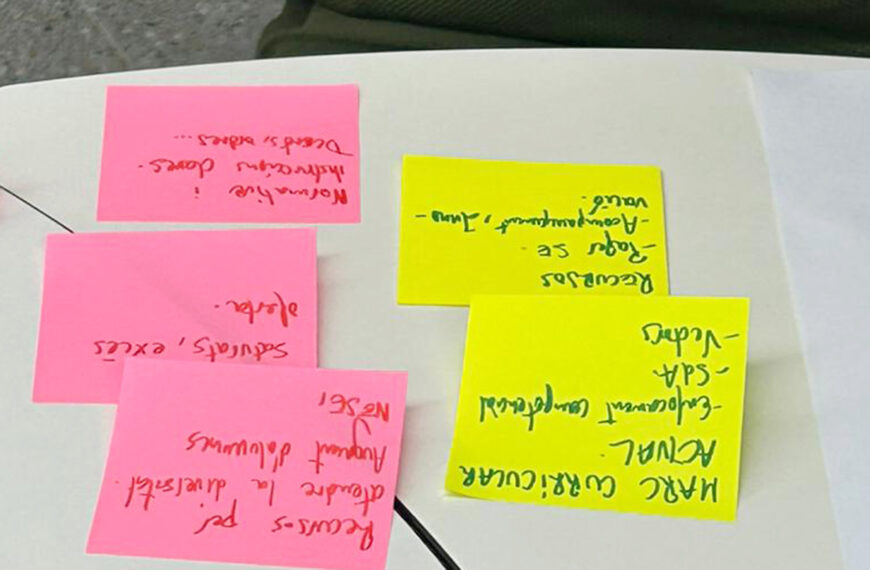 MARC CURRICULAR
ACTUAL
-Enfocament competencial
-SdA
-Vectors
RECURSOS
-Paper SE.
-Acompanyament, Inno-
vació.
Recursos per
atendre la diversitat.
Augment d'alumnes
NESE,
saturats, excés
oferta.
Normativa i
instruccions clares.
Decrets, ordres...